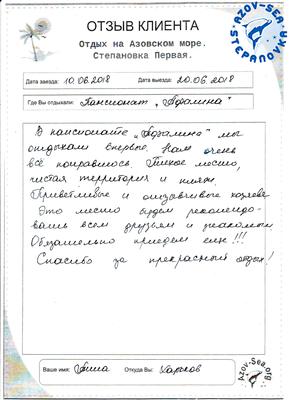 ОТЗЫВ КЛИЕНТА
Отдых на Азовском море.
Степановка Первая.
AZOV-SEA
STEPANOVKA
Дата заезда: 10.06.2018 Дата выезда: 20.06.2018
Где Вы отдыхали: Пансионат "Адалина"
В пансионате "Адалина" мы
отдыхали впервые. Нам очень
всё понравилось. Тихое место,
чистая территория и пляж.
Приветливые и отзывчивые хозяева.
Это место будем рекомендо-
вать всем друзьям и знакомым
Обязательно приедем ещё!!!
Спасибо за прекрасный отдых!
Ваше имя: Анна Откуда Вы: Харьков
Azov-Sea.org